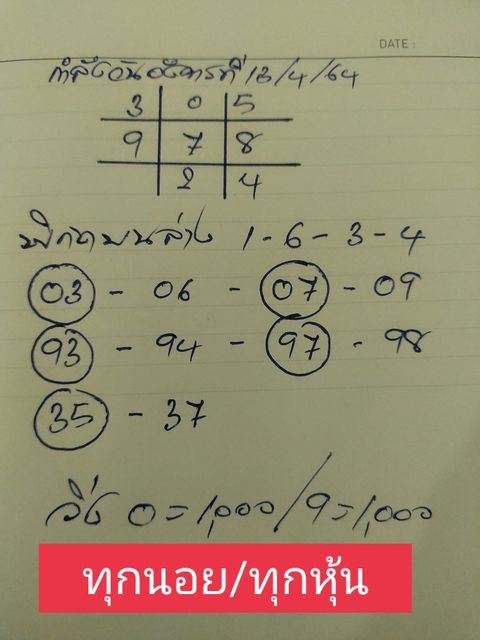 DATE :
กำลังวันอังคารที่ 13/4/64
3 0 5
9 7 8
2 4
พิกัดบนล่าง 1-6-3-4
03 - 06 - 07 - 09
93 - 94 - 97 - 98
35 - 37
วิ่ง 0=1,000/9=1,000
ทุกนอย/ทุกหุ้น